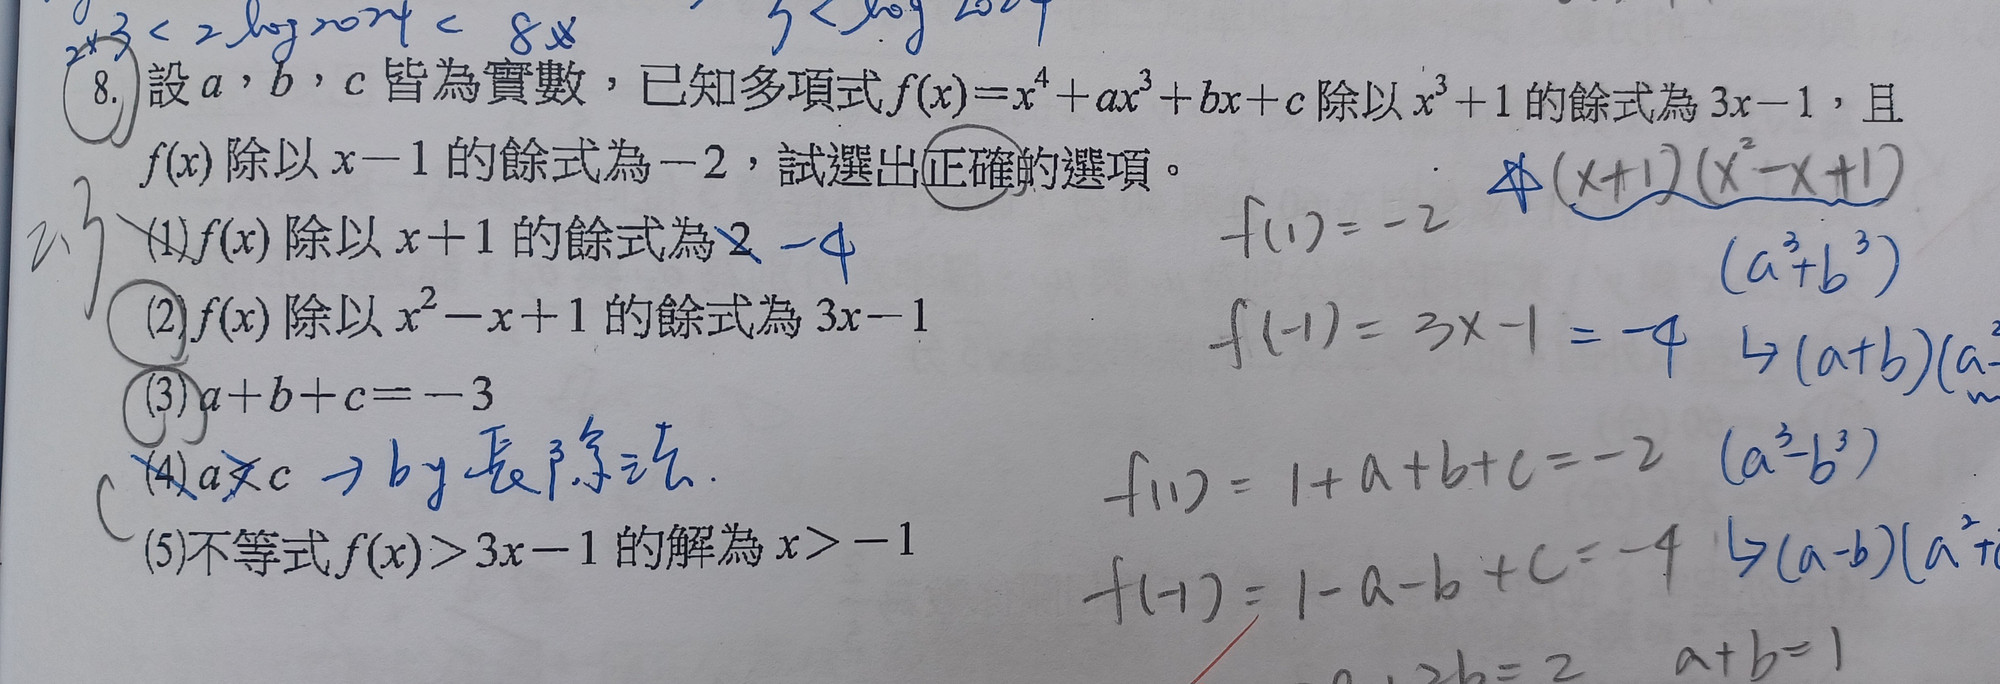 2×3 < 2 log 2024 < 8×
3 < log 2024
8. 設 a，b，c 皆為實數，已知多項式 f(x)=x⁴+ax³+bx+c 除以 x³+1 的餘式為 3x−1，且
f(x) 除以 x−1 的餘式為−2，試選出正確的選項。
(x+1)(x²−x+1)
f(1)=-2
2.3
(1) f(x) 除以 x+1 的餘式為 2 -4
(a³+b³)
(2) f(x) 除以 x²−x+1 的餘式為 3x−1
f(-1) = 3x-1 = -4
↳(a+b)(a²-
(3) a+b+c=−3
(4) a<c → by 長除法.
f(1) = 1+a+b+c = -2
(a³-b³)
↳(a-b)(a²+
(5)不等式 f(x)>3x−1 的解為 x>−1
f(-1) = 1-a-b+c = -4
2b=2
a+b=1